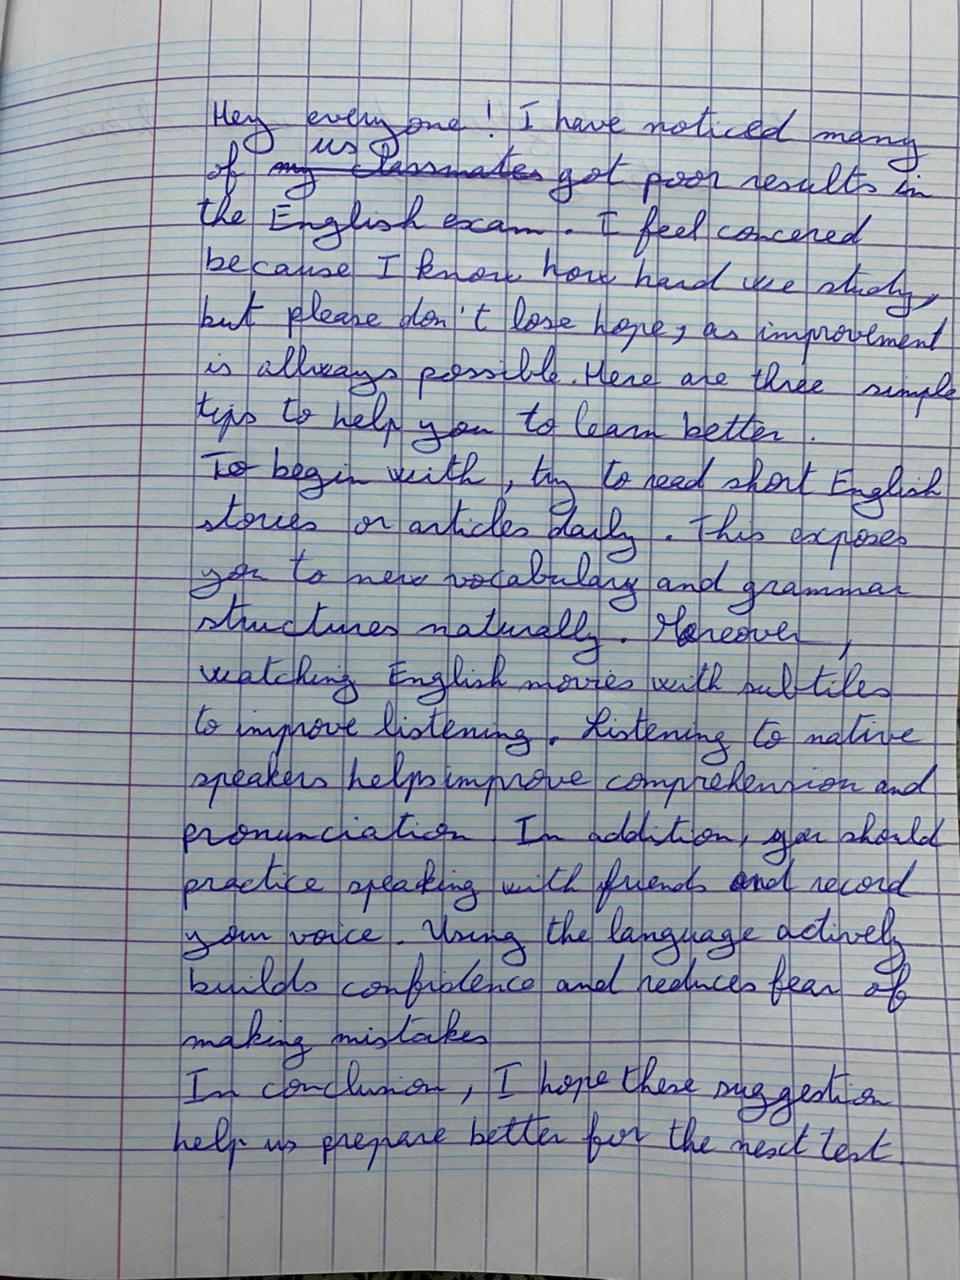 Hey everyone! I have noticed many
of us got poor results in
the English exam. I feel concered
because I know how hard we study,
but please don't lose hope, as improvement
is allways possible. Here are three simple
tips to help you to learn better.
To begin with, try to read short English
stories or articles daily. This exposes
you to new vocabulary and grammar
structures naturally. Moreover,
watching English movies with subtiles
to improve listening. Listening to native
speakers helps improve comprehension and
pronunciation. In addition, you should
practice speaking with friends and record
your voice. Using the language actively
builds confidence and reduces fear of
making mistakes
In conclusion, I hope these suggestion
help us prepare better for the next test.